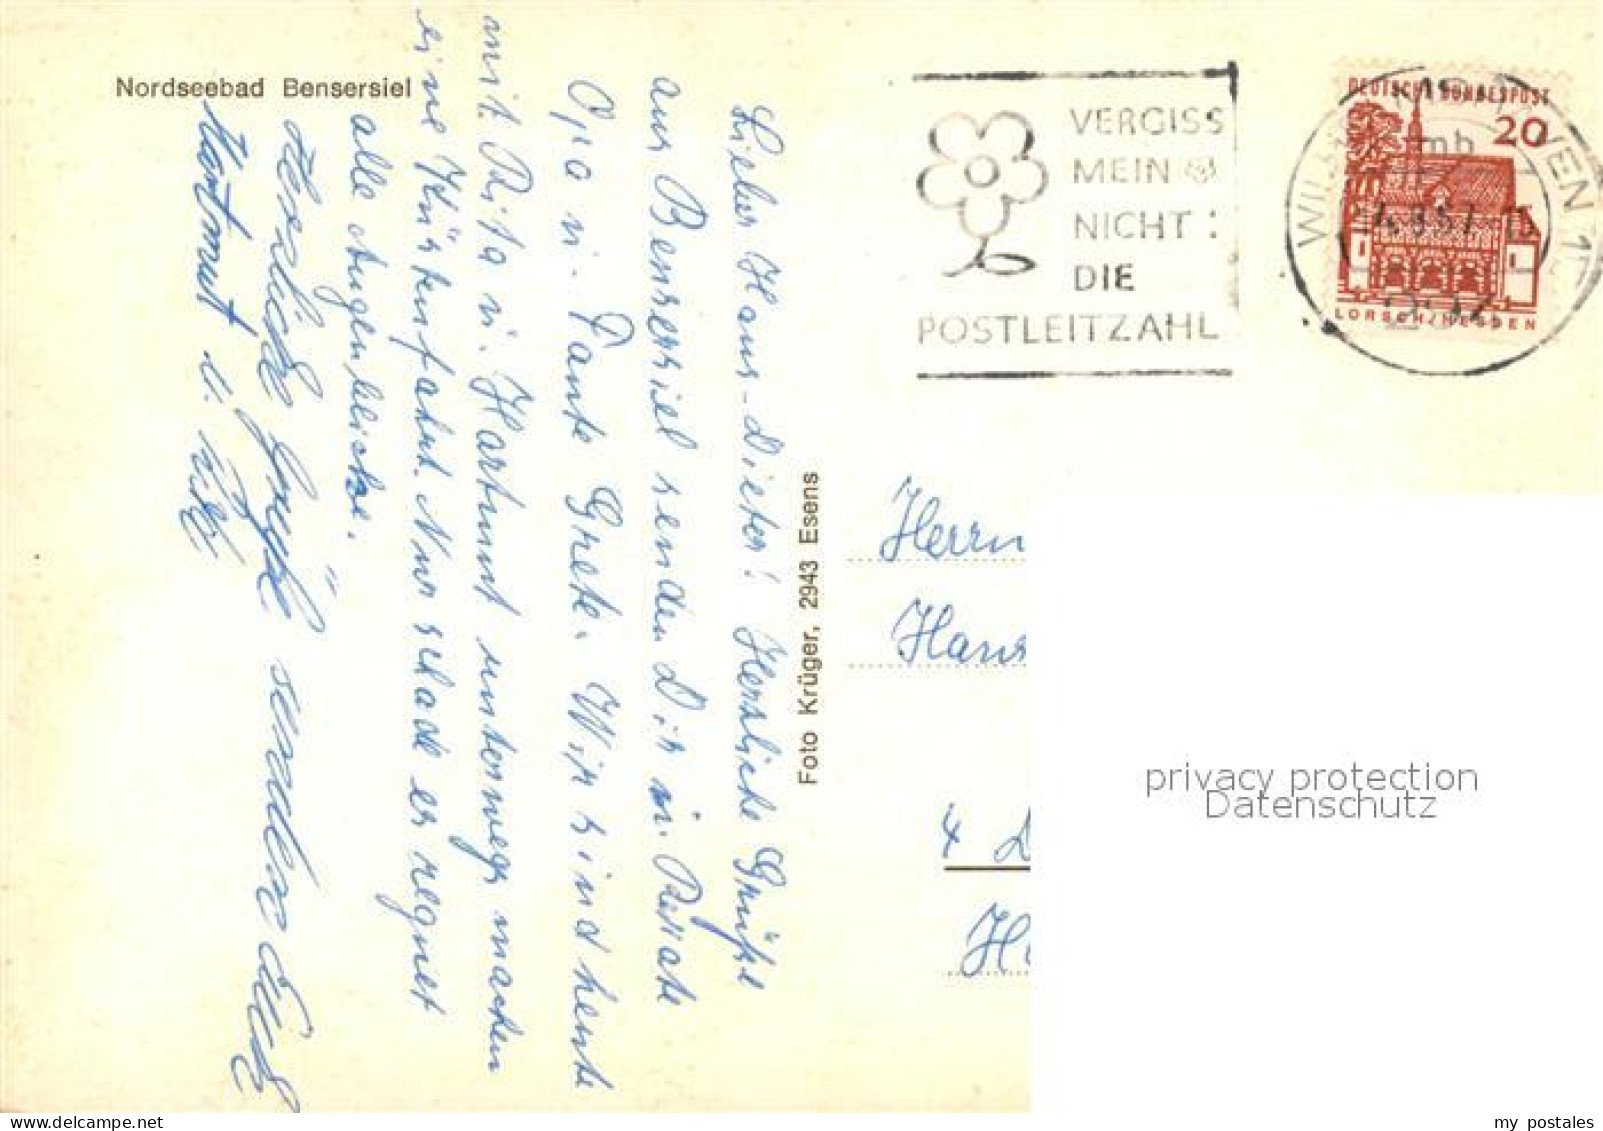 Nordseebad Bensersiel
Lieber Hans-Dieter! Herzliche Grüße
aus Bensersiel senden Dir
Opa u. Tante Grete. Wir sind heute
mit Rita u. Hartmut unterwegs machen
eine Küstenfahrt. Nur schade es regnet
alle Augenblicke.
Herzliche Grüße senden Dir
Hartmut u.
Foto Krüger, 2943 Esens
VERGISS
MEIN
NICHT:
DIE
POSTLEITZAHL
DEUTSCHE BUNDESPOST
20
LORSCH/HESSEN
mb
Herrn
Hans
4 D
privacy protection
Datenschutz
my postales